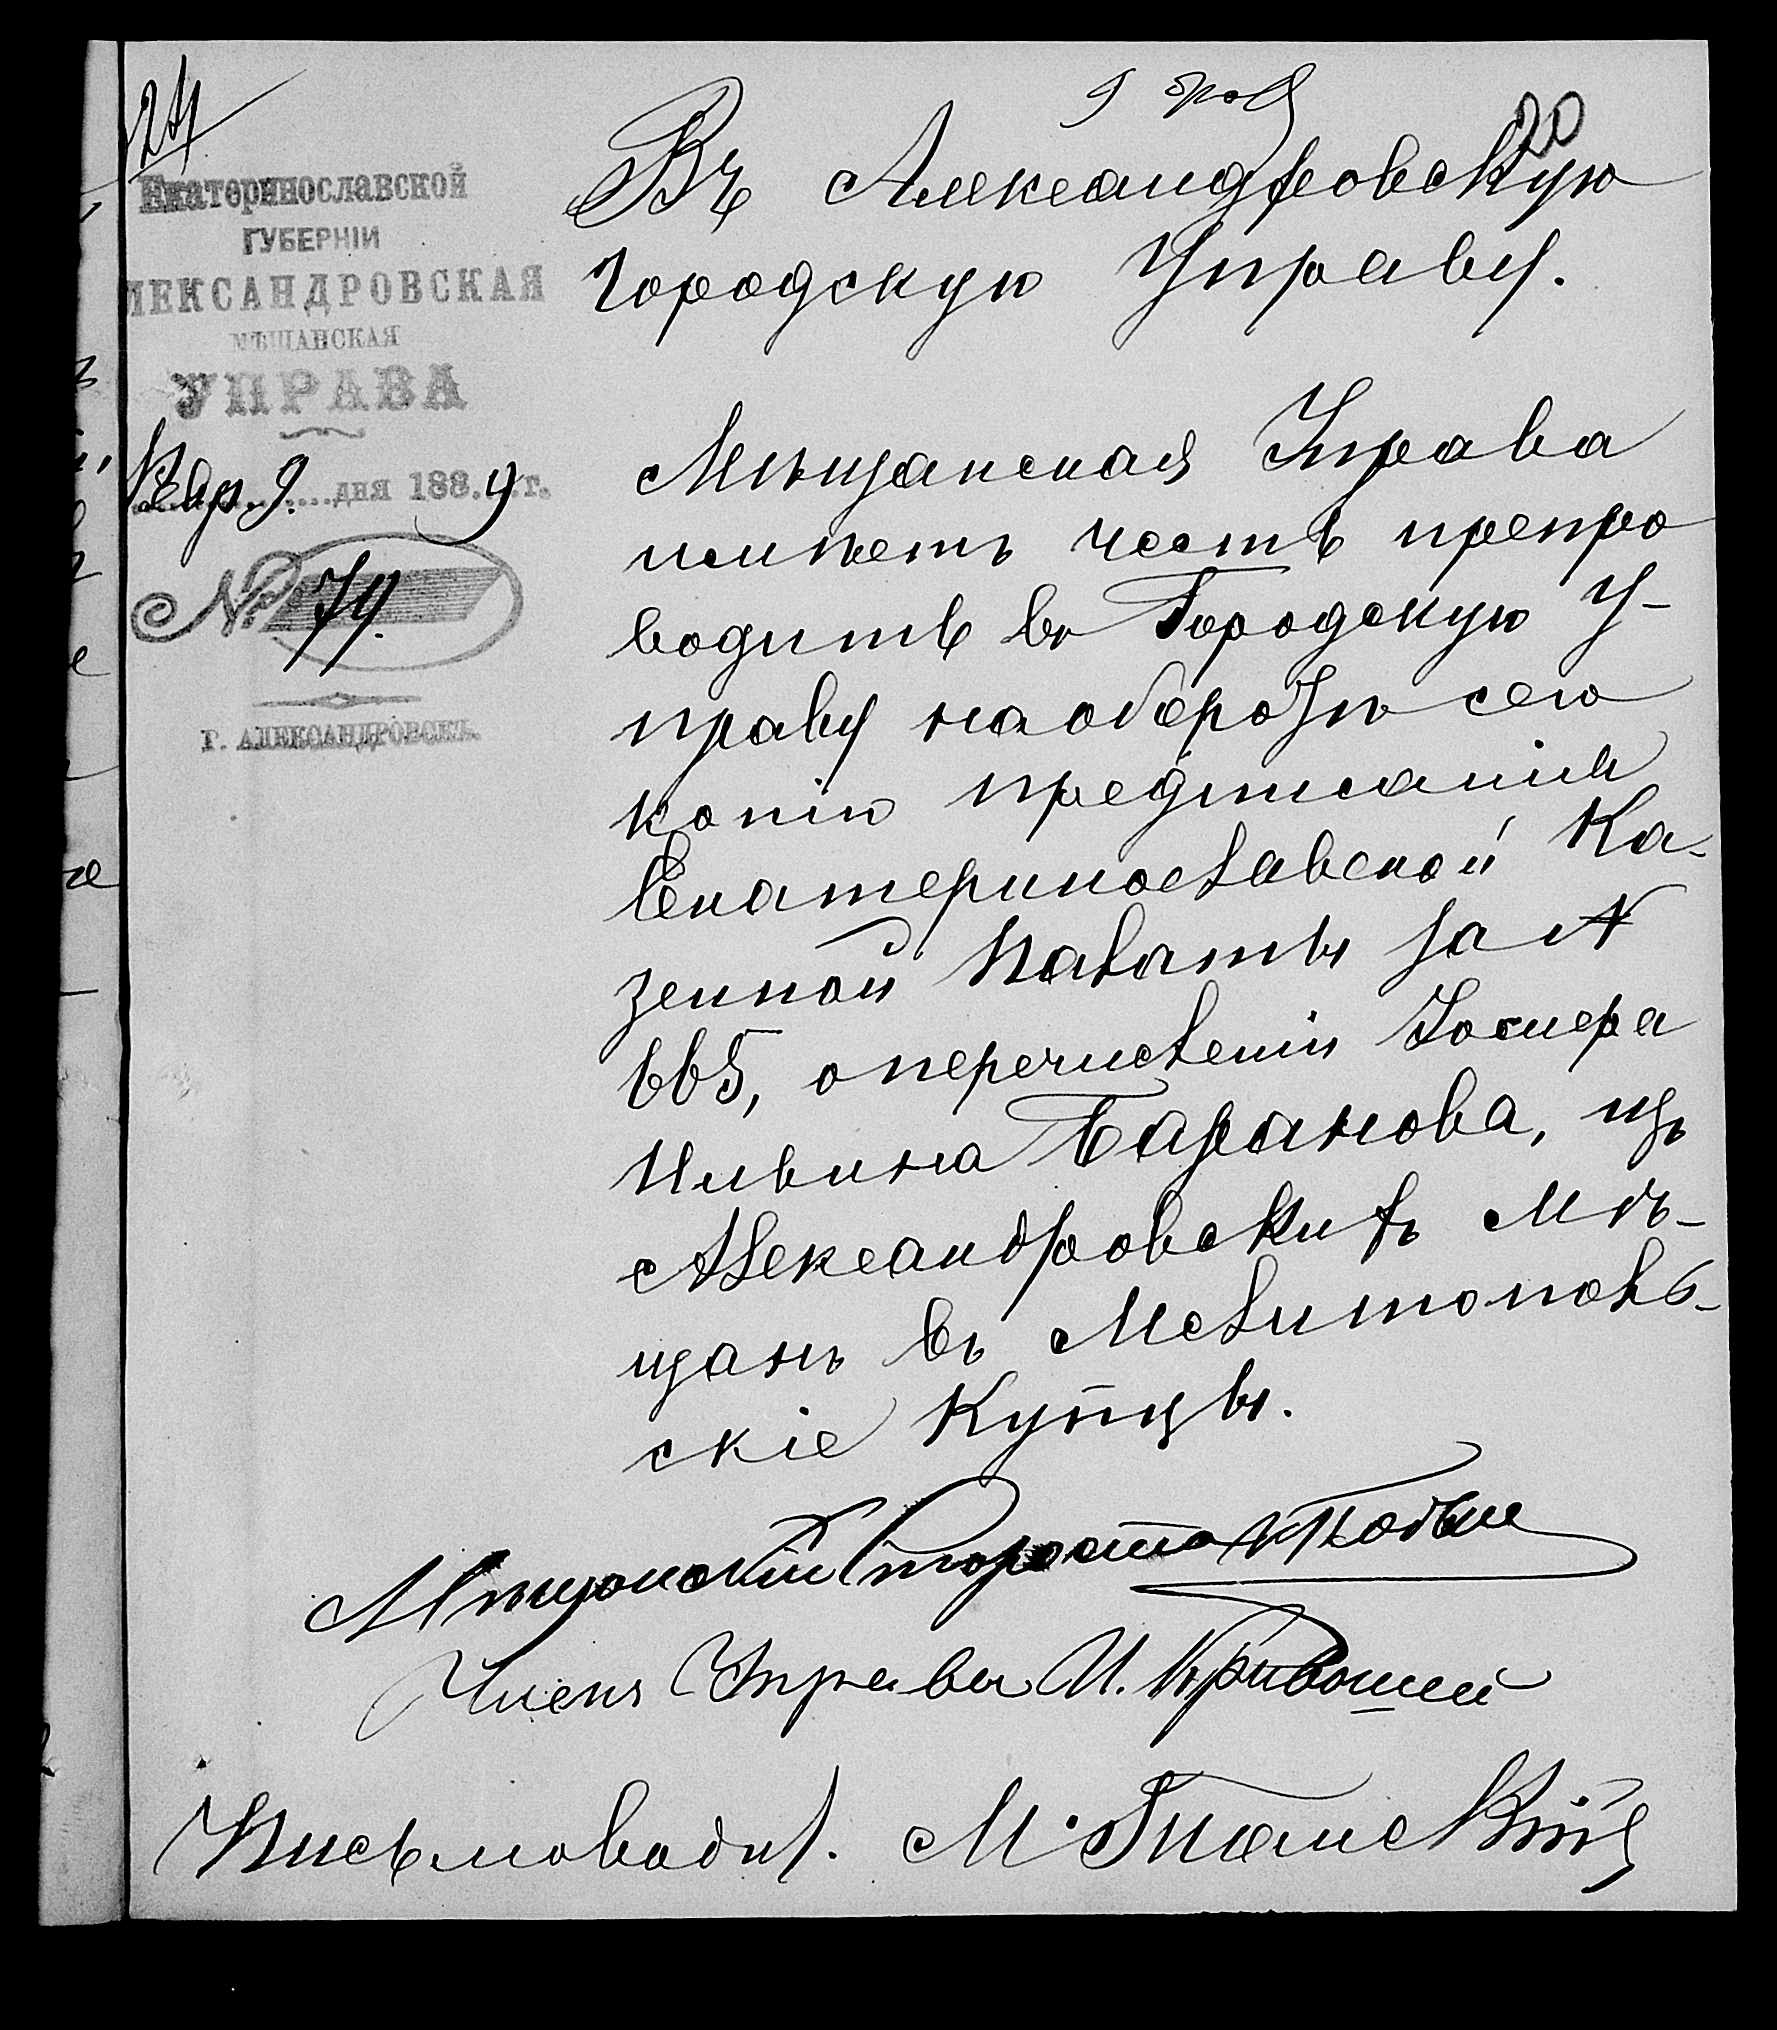 24
20
Екатеринославской
ГУБЕРНІИ
ЛЕКСАНДРОВСКАЯ
МѢЩАНСКАЯ
УПРАВА
9. дня 1889 г.
№ 79.
Г. АЛЕКСАНДРОВСКЪ.
Въ Александровскую
Городскую Управу.
Мѣщанская Управа
имѣетъ честь препро
водить въ Городскую У-
праву на оборотѣ сего
копію предписанія
Екатеринославской Ка-
зенной Палаты за №
665, о перечисленіи
Баранова, изъ
Александровскихъ Мѣ-
щанъ въ Мелитополь-
скіе Купцы.
Мѣщанскій Староста
Членъ Управы И. Кривошей
Письмоводит. М.